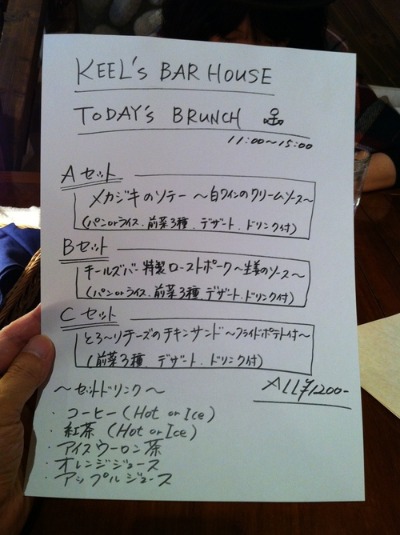 KEEL's BAR HOUSE
TODAY's BRUNCH
11:00〜15:00
Aセット
メカジキのソテー 〜白ワインのクリームソース〜
(パンorライス、前菜3種、デザート、ドリンク付)
Bセット
キールズバー特製ローストポーク〜生姜のソース〜
(パンorライス、前菜3種 デザート、ドリンク付)
Cセット
とろ〜りチーズのチキンサンド〜フライドポテト付〜
(前菜3種 デザート、ドリンク付)
ALL ¥1200-
〜セットドリンク〜
・コーヒー(Hot or Ice)
・紅茶(Hot or Ice)
・アイスウーロン茶
・オレンジジュース
・アップルジュース